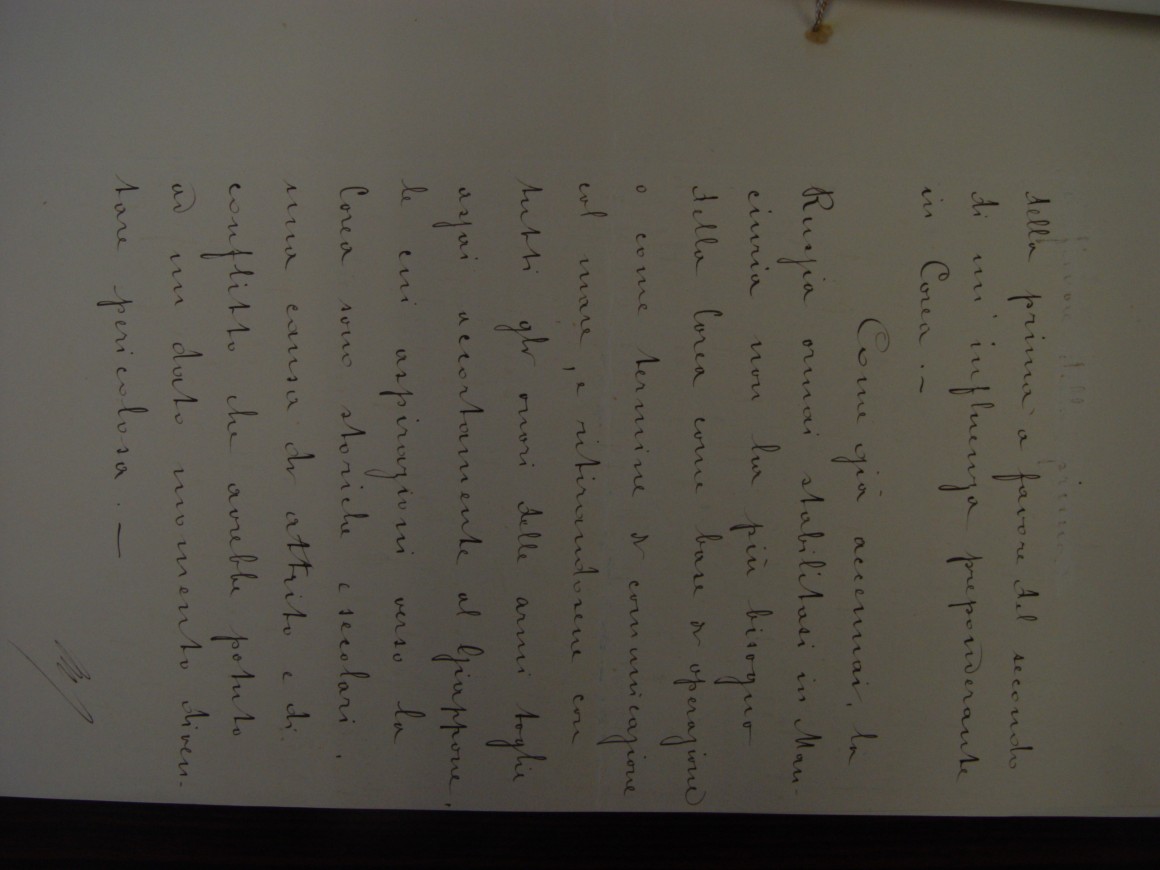 della prima a favore del secondo
di un' influenza preponderante
in Corea. —
Come già accennai, la
Russia ormai stabilitasi in Man-
ciuria non ha più bisogno
della Corea come base di operazione
o come termine di comunicazione
col mare, e ritirandosene con
tutti gli onori delle armi toglie
assai accortamente al Giappone,
le cui aspirazioni verso la
Corea sono storiche e secolari,
una causa di attrito e di
conflitto che avrebbe potuto
ad un dato momento diven-
tare pericolosa. —